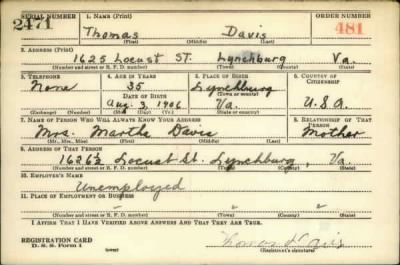 SERIAL NUMBER 1. NAME (Print) ORDER NUMBER
2471 Thomas Davis 481
(First) (Middle) (Last)
2. ADDRESS (Print)
1625 Locust St. Lynchburg Va.
(Number and street or R. F. D. number) (Town) (County) (State)
3. TELEPHONE 4. AGE IN YEARS 5. PLACE OF BIRTH 6. COUNTRY OF CITIZENSHIP
None 35 Lynchburg
DATE OF BIRTH (Town or county)
Aug. 3, 1906 Va. U.S.A.
(Exchange) (Number) (Mo.) (Day) (Yr.) (State or country)
7. NAME OF PERSON WHO WILL ALWAYS KNOW YOUR ADDRESS 8. RELATIONSHIP OF THAT PERSON
Mrs. Martha Davis Mother
(Mr., Mrs., Miss) (First) (Middle) (Last)
9. ADDRESS OF THAT PERSON
1626½ Locust St. Lynchburg, Va.
(Number and street or R. F. D. number) (Town) (County) (State)
10. EMPLOYER'S NAME
Unemployed
11. PLACE OF EMPLOYMENT OR BUSINESS
" " "
(Number and street or R. F. D. number) (Town) (County) (State)
I AFFIRM THAT I HAVE VERIFIED ABOVE ANSWERS AND THAT THEY ARE TRUE.
REGISTRATION CARD Thomas Davis
D. S. S. Form 1 (Registrant's signature)